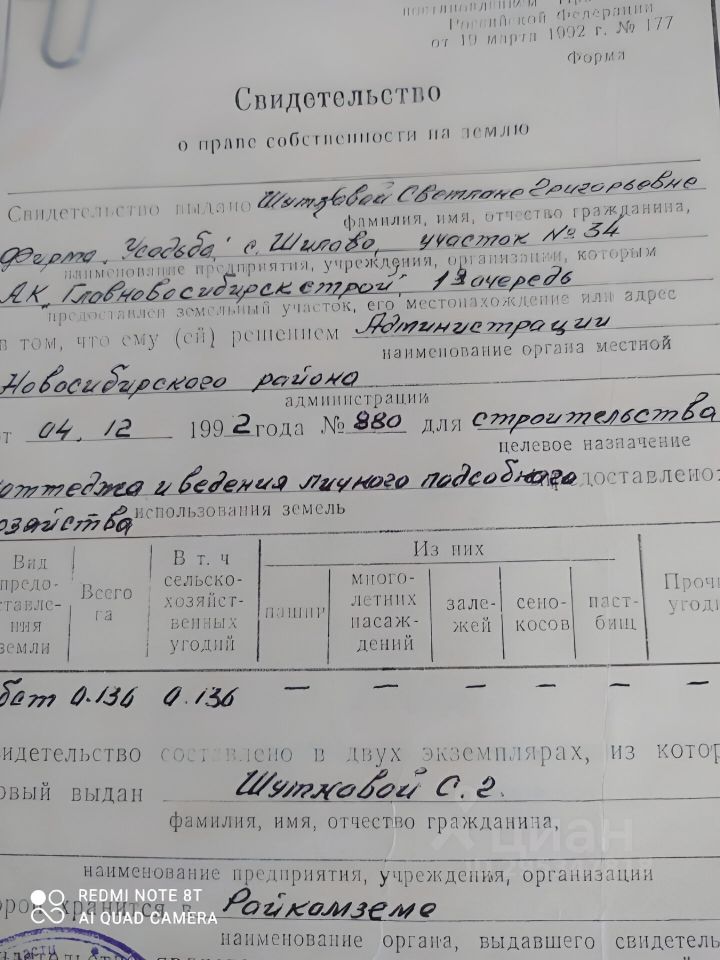 постановлением
Российской Федерации
от 19 марта 1992 г. № 177
Форма
Свидетельство
о праве собственности на землю
Свидетельство выдано Шутковой Светлане Григорьевне
фамилия, имя, отчество гражданина,
Фирма „Усадьба", с. Шилово, участок № 34
наименование предприятия, учреждения, организации, которым
АК „Главновосибирскстрой", 1я очередь
предоставлен земельный участок, его местонахождение или адрес
в том, что ему (ей) решением Администрации
наименование органа местной
Новосибирского района
администрации
от 04. 12 1992 года № 880 для строительства
целевое назначение
коттеджа и ведения личного подсобного предоставлено:
хозяйства использования земель
Вид предо- ставле- ния земли
Всего га
В т. ч сельско- хозяйст- венных угодий
Из них
пашни
много- летних насаж- дений
зале- жей
сено- косов
паст- бищ
Прочи угоди
0.136 0.136 — — — — — —
видетельство составлено в двух экземплярах, из котор
рвый выдан Шутковой С. Г.
фамилия, имя, отчество гражданина,
наименование предприятия, учреждения, организации
орой хранится в Райкомземе
наименование органа, выдавшего свидетель
циан
REDMI NOTE 8T
AI QUAD CAMERA